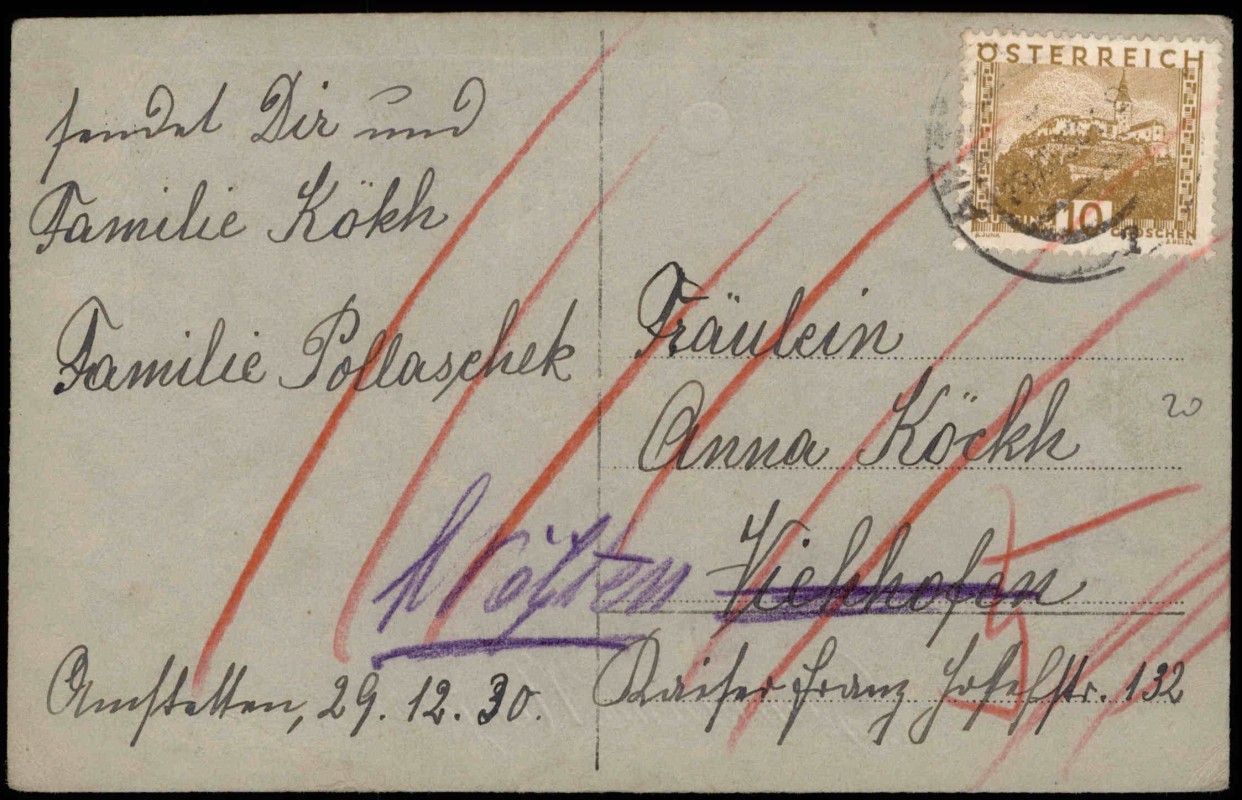 sendet Dir und
Familie Kökh
Familie Pollaschek
Amstetten, 29. 12. 30.
ÖSTERREICH
GÜSSING 10 GROSCHEN
Fräulein
Anna Köckh
20
Viehhofen
Kaiser Franz Josefstr. 132